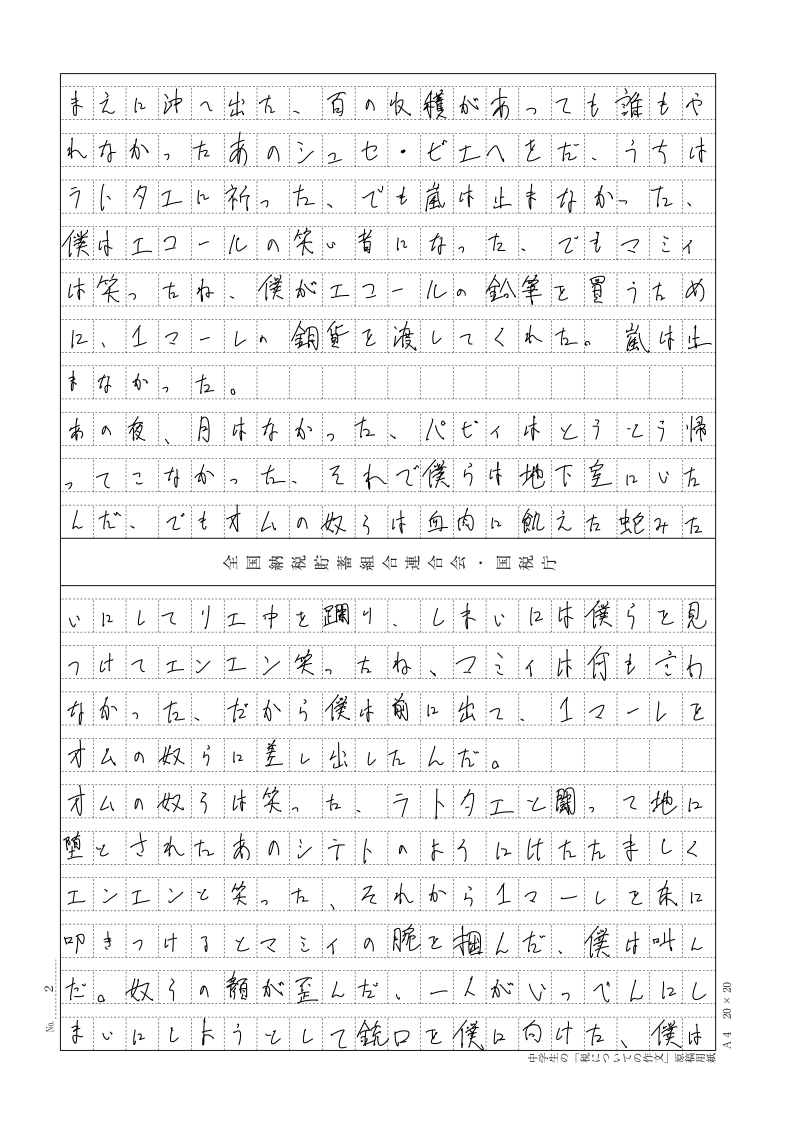 まえに沖へ出た、百の収穫があっても誰もや
れなかったあのシュセ・ピエへをだ、うちは
ラトタエに祈った、でも嵐は止まなかった、
僕はエコールの笑い者になった、でもマミィ
は笑ったね、僕がエコールの鉛筆を買うため
に、1マールの銅貨を渡してくれた。嵐は止
まなかった。
あの夜、月はなかった、パピィはとうとう帰
ってこなかった、それで僕らは地下室にいた
んだ、でもオムの奴らは血肉に飢えた蛇みた
全国納税貯蓄組合連合会・国税庁
いにしてリエ中を躙り、しまいには僕らを見
つけてエンエン笑ったね、マミィは何も言わ
なかった、だから僕は前に出て、1マールを
オムの奴らに差し出したんだ。
オムの奴らは笑った、ラトタエと闘って地に
堕とされたあのシテトのようにけたたましく
エンエンと笑った、それから1マールを床に
叩きつけるとマミィの腕を掴んだ、僕は叫ん
だ。奴らの顔が歪んだ、一人がいっぺんにし
まいにしようとして銃口を僕に向けた、僕は
No. 2
A4 20×20
中学生の「税についての作文」原稿用紙